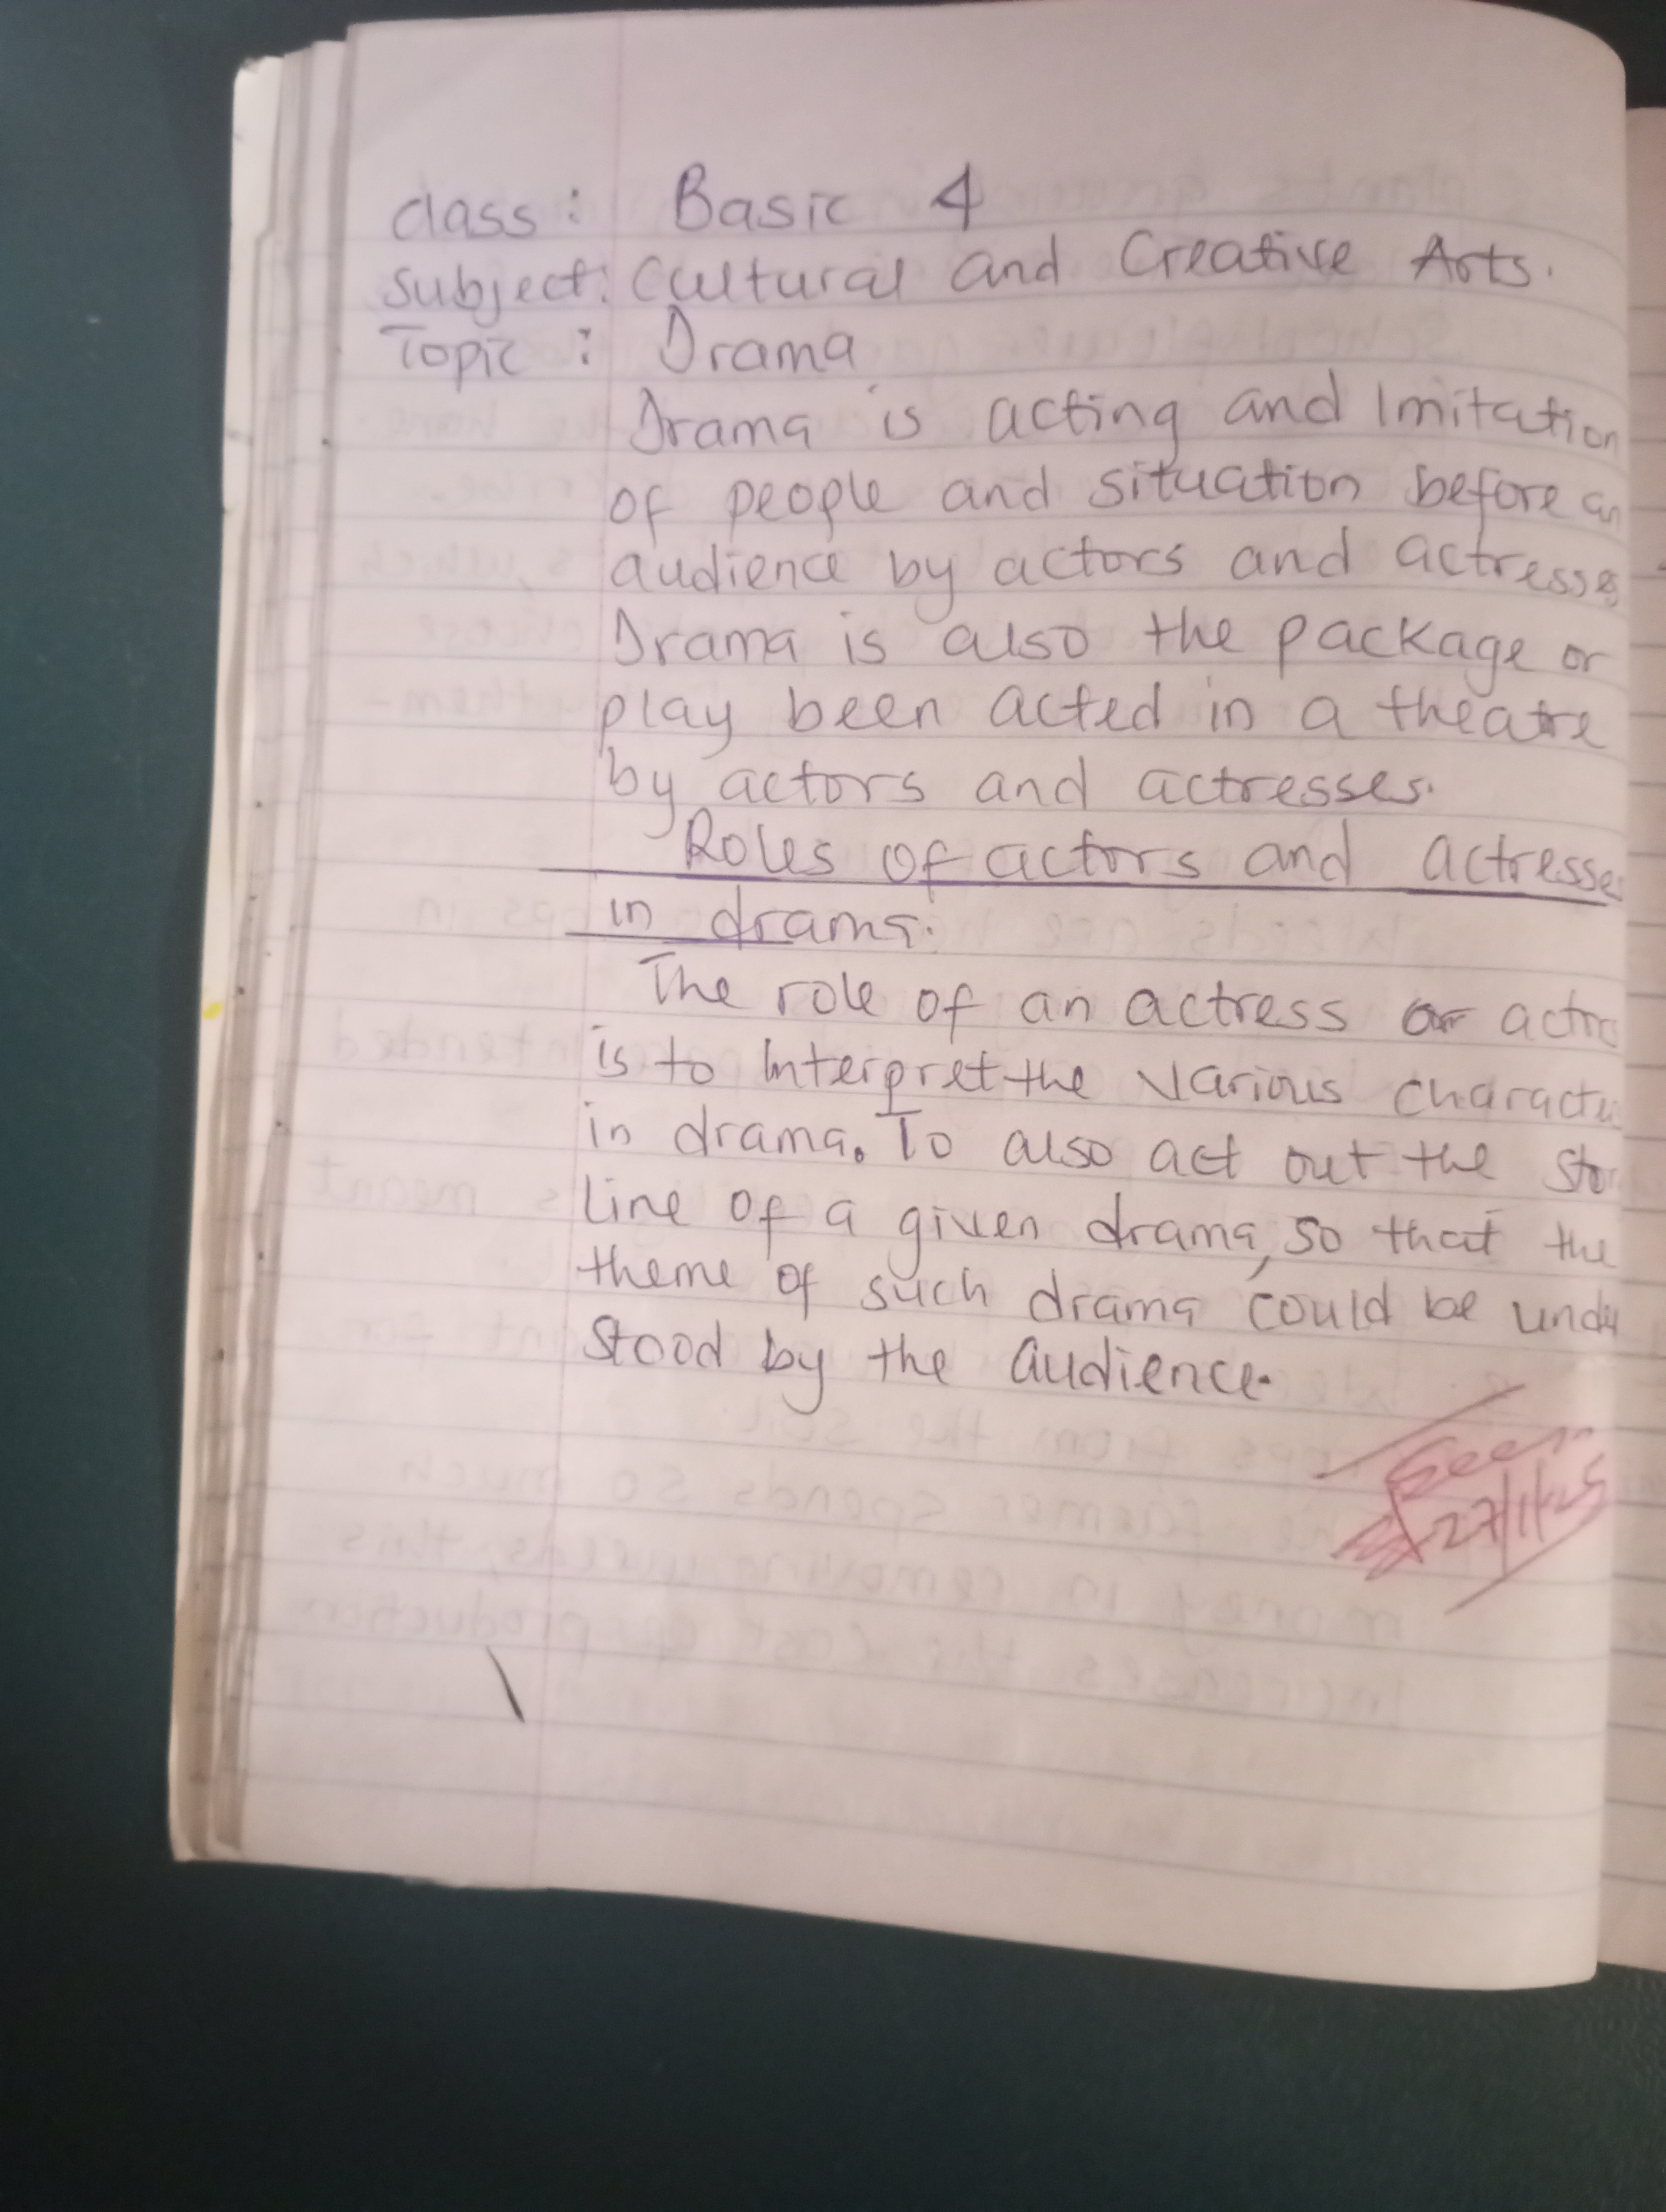 class: Basic 4
Subject: Cultural and Creative Arts.
Topic: Drama
Drama is acting and Imitation
of people and situation before an
audience by actors and actresses
Drama is also the package or
play been acted in a theatre
by actors and actresses.
Roles of actors and actresses
in drama.
The role of an actress or
is to Interpret the various
in drama. To also act out the
line of a given drama, so that the
theme of such drama could be unde
stood by the audience.
Seen
27/1/25